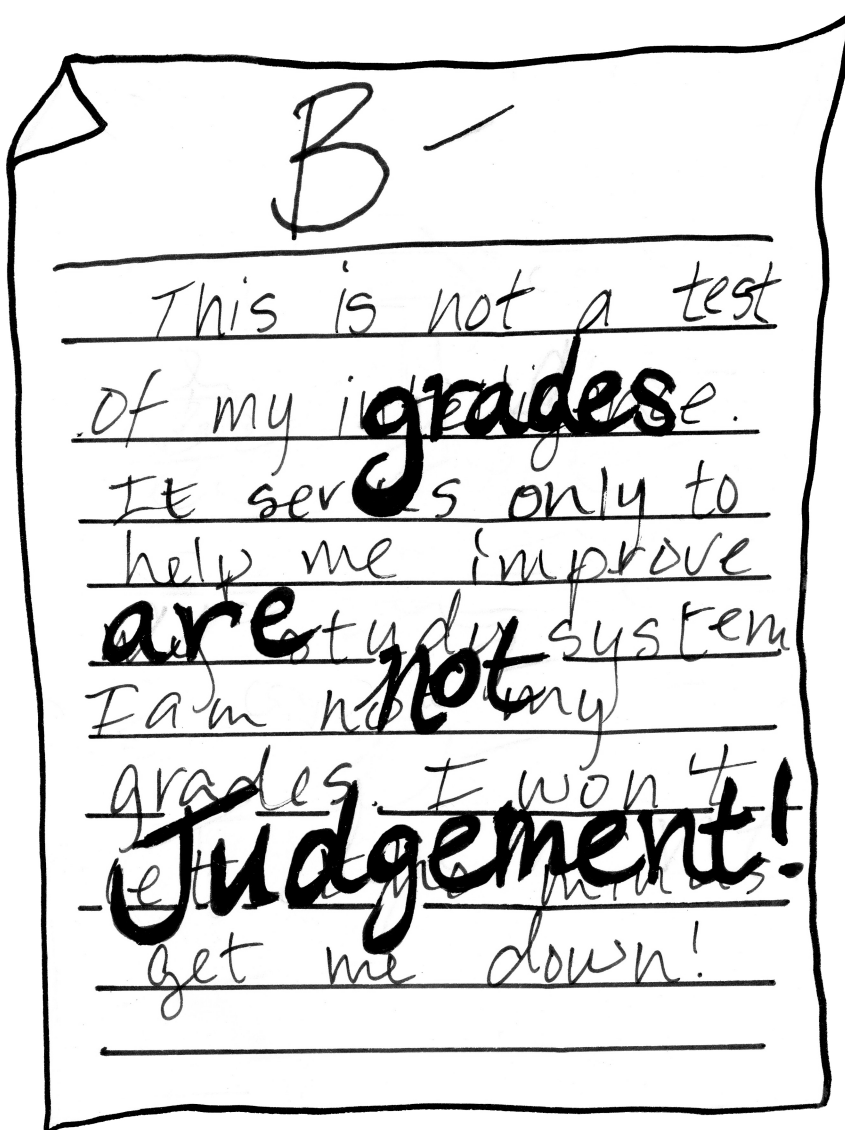 B-
This is not a test
of my intelligence.
It serves only to
help me improve
my study system
I am not my
grades. I won't
let the minus
get me down!
grades
are
not
Judgement!